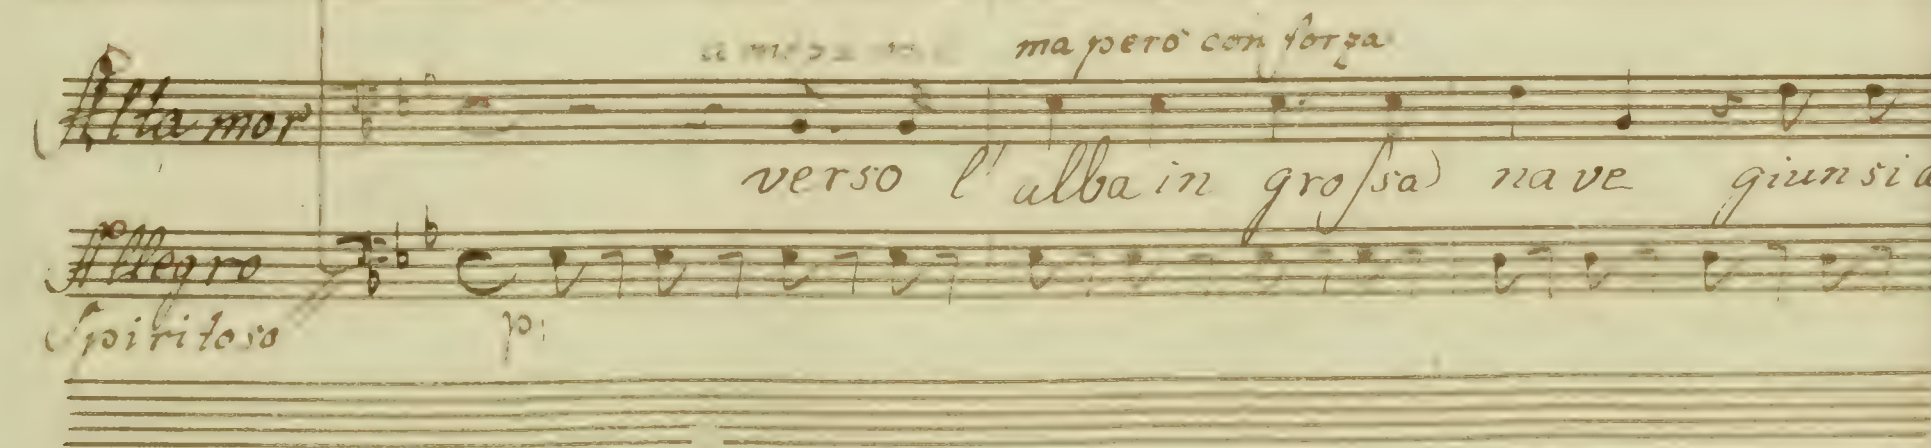 ma però con forza
Altamor
verso l'alba in grossa nave giunsi a
Allegro
Spiritoso p: